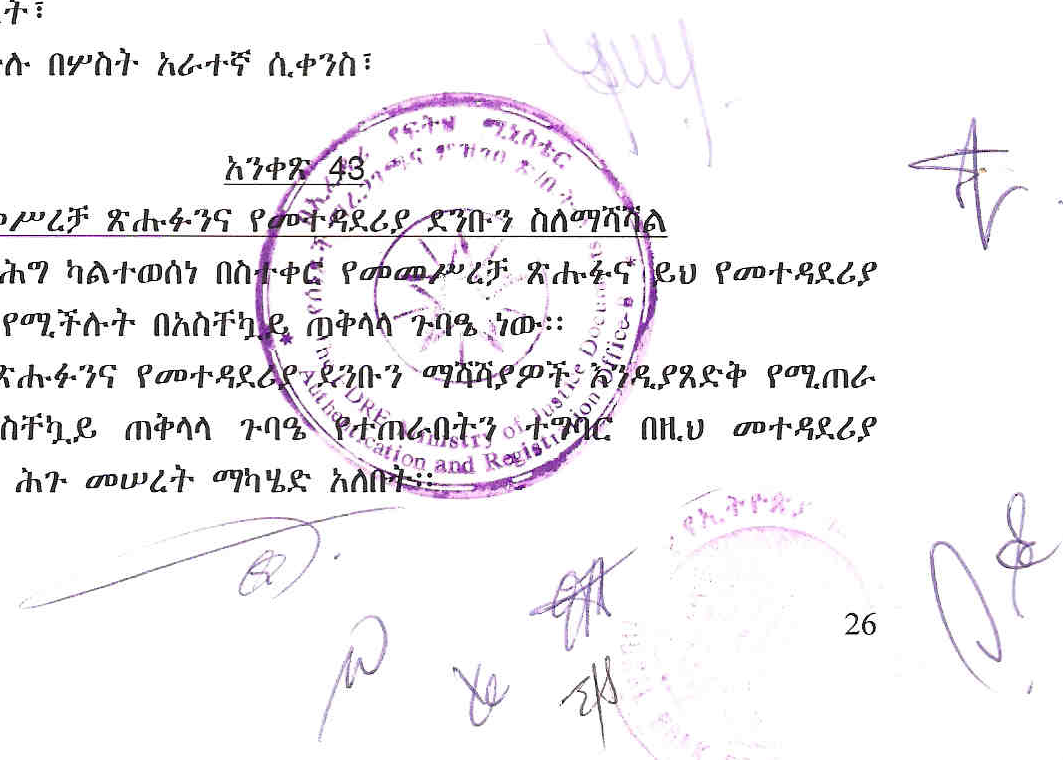 ት፣
ሉ በሦስት አራተኛ ሲቀንስ፣
አንቀጽ 43
ሥረቻ ጽሑፉንና የመተዳደሪያ ደንቡን ስለማሻሻል
ሕግ ካልተወሰነ በስተቀር የመመሥረቻ ጽሑፉና ይህ የመተዳደሪያ
የሚችሉት በአስቸኳይ ጠቅላላ ጉባዔ ነው፡፡
ጽሑፉንና የመተዳደሪያ ደንቡን ማሻሻያዎች እንዲያጸድቅ የሚጠራ
ስቸኳይ ጠቅላላ ጉባዔ የተጠራበትን ተግባር በዚህ መተዳደሪያ
ሕጉ መሠረት ማካሄድ አለበት፡፡
የፍትህ ሚኒስቴር
The FDRE Ministry of Justice
Authentication and Registration Office
የኢትዮጵያ
26